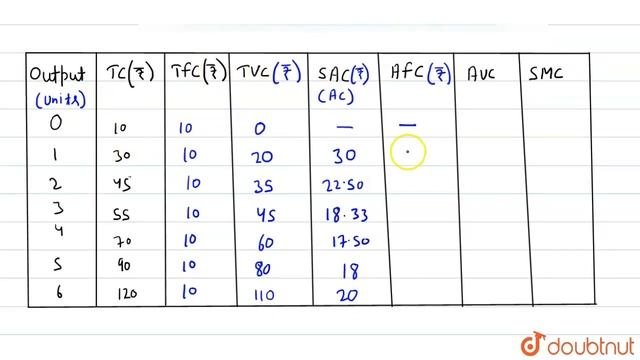 Output (Units) TC(₹) TFC(₹) TVC(₹) SAC(₹) (AC) AFC(₹) AVC SMC
0 10 10 0 — —
1 30 10 20 30
2 45 10 35 22.50
3 55 10 45 18.33
4 70 10 60 17.50
5 90 10 80 18
6 120 10 110 20
doubtnut